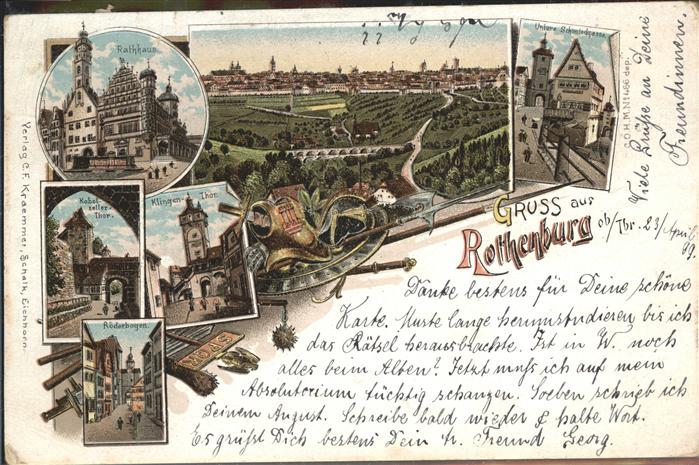 Rathhaus.
Untere Schmiedgasse.
C.O.H.M. No 1466 dep.
Verlag C. F. Kraemmer, Schalk, Eichhorn.
Kobol
zeller-
Thor.
Klingen-Thor.
Röderbogen.
GRUSS aus
Rothenburg
ob/Tbr. 23/April
99.
Viele Grüße an Deine
Freundinnen.
Danke bestens für Deine schöne
Karte. Muste lange herumstudieren bis ich
das Rätsel herausbrachte. Ist in W. noch
alles beim Alben? Jetzt muß ich auf mein
Absolutorium tüchtig schanzen. Soeben schrieb ich
Deinem August. Schreibe bald wieder & halte Wort.
Es grüßt Dich bestens Dein tr. Freund Georg.